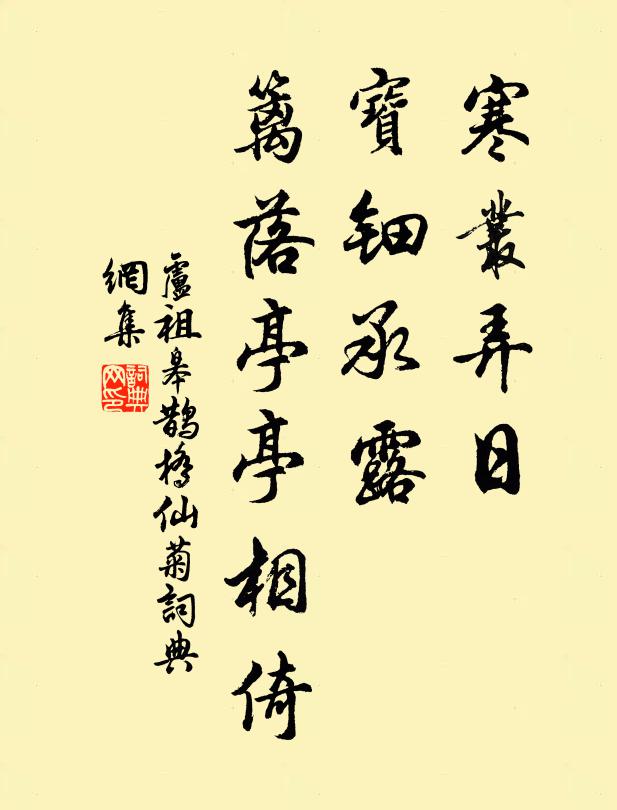 寒叢弄日
寶鈿承露
籬落亭亭相倚
盧祖皋鵲橋仙菊詞典
網集
詞典
网印